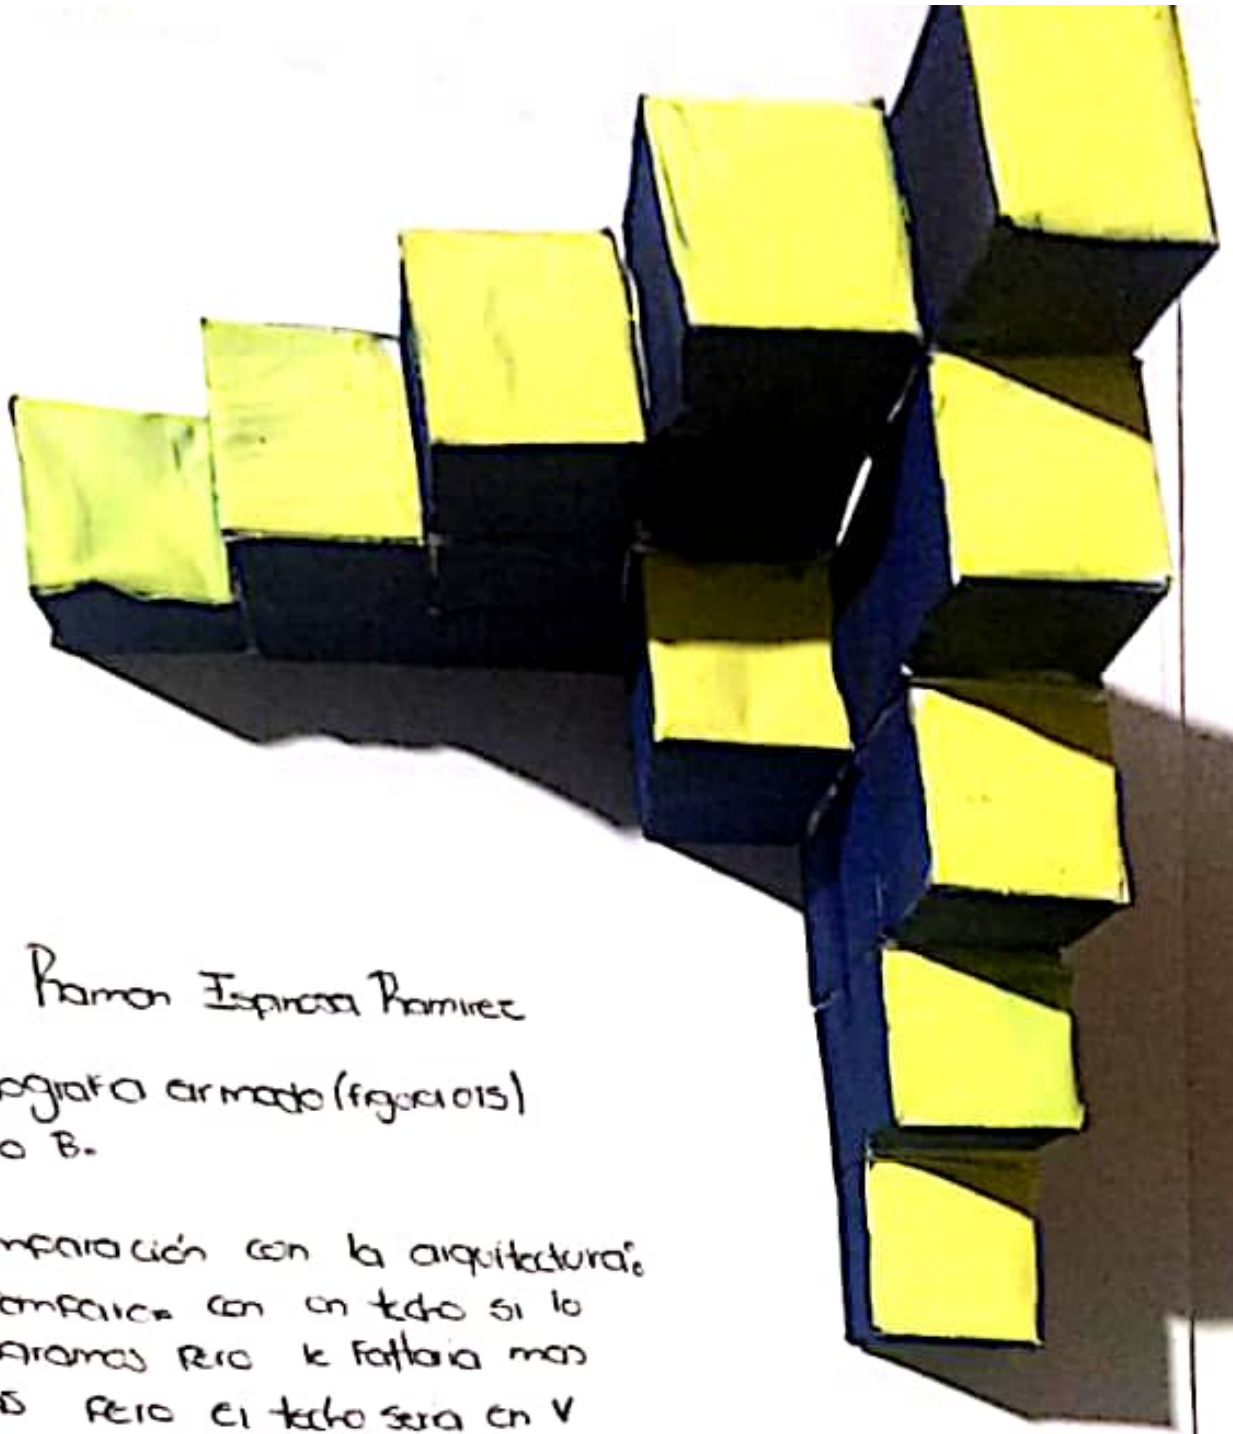 Ramon Espinosa Ramirez
ografo armado (figura 015)
o B.
mparación con la arquitectura:
compara con un techo si lo
aramos pero le faltaria mas
s pero el techo seria en V